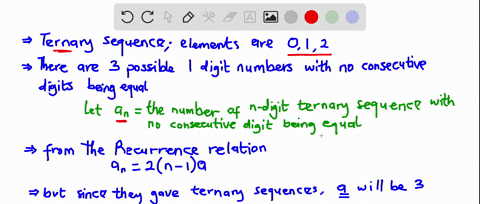 ⇒ Ternary sequence; elements are 0,1,2
⇒ There are 3 possible 1 digit numbers with no consecutive
digits being equal
Let aₙ = the number of n-digit ternary sequence with
no consecutive digit being equal
⇒ from The Recurrence relation
aₙ = 2(n-1)a
⇒ but since they gave ternary sequences, a will be 3